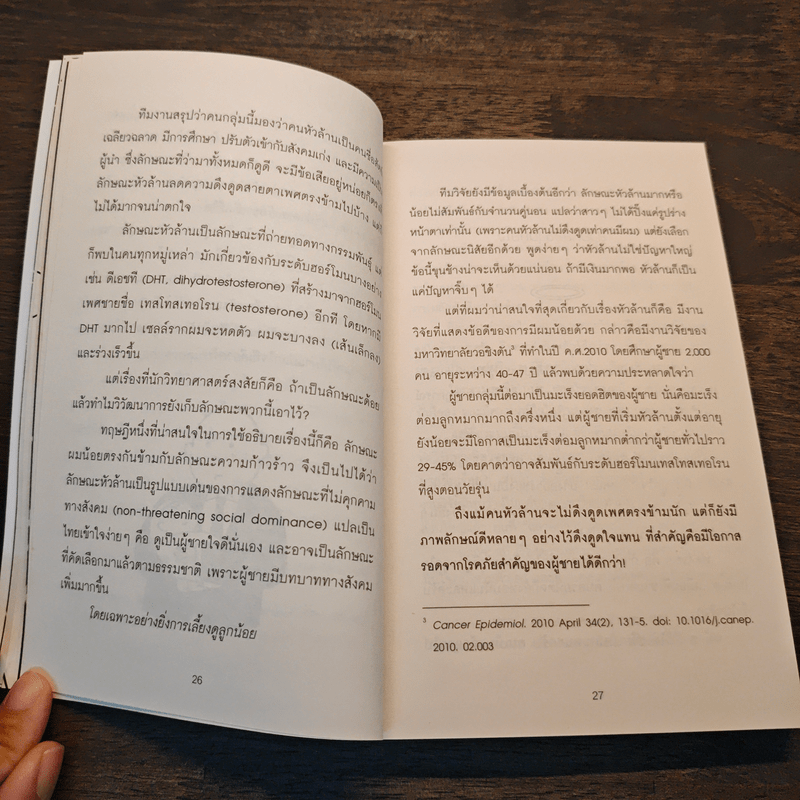 ทีมงานสรุปว่าคนกลุ่มนี้มองว่าคนหัวล้านเป็นคน
เฉลียวฉลาด มีการศึกษา ปรับตัวเข้ากับสังคมเก่ง และมีความ
ผู้นำ ซึ่งลักษณะที่ว่ามาทั้งหมดก็ดูดี จะมีข้อเสียอยู่หน่อยก็ตรงที่
ลักษณะหัวล้านลดความดึงดูดสายตาเพศตรงข้ามไปบ้าง แต่
ไม่ได้มากจนน่าตกใจ
ลักษณะหัวล้านเป็นลักษณะที่ถ่ายทอดทางกรรมพันธุ์ และ
ก็พบในคนทุกหมู่เหล่า มักเกี่ยวข้องกับระดับฮอร์โมนบางอย่าง
เช่น ดีเอชที (DHT, dihydrotestosterone) ที่สร้างมาจากฮอร์โมน
เพศชายชื่อ เทสโทสเทอโรน (testosterone) อีกที โดยหากมี
DHT มากไป เซลล์รากผมจะหดตัว ผมจะบางลง (เส้นเล็กลง)
และร่วงเร็วขึ้น
แต่เรื่องที่นักวิทยาศาสตร์สงสัยก็คือ ถ้าเป็นลักษณะด้อย
แล้วทำไมวิวัฒนาการยังเก็บลักษณะพวกนี้เอาไว้?
ทฤษฎีหนึ่งที่น่าสนใจในการใช้อธิบายเรื่องนี้ก็คือ ลักษณะ
ผมน้อยตรงกันข้ามกับลักษณะความก้าวร้าว จึงเป็นไปได้ว่า
ลักษณะหัวล้านเป็นรูปแบบเด่นของการแสดงลักษณะที่ไม่คุกคาม
ทางสังคม (non-threatening social dominance) แปลเป็น
ไทยเข้าใจง่ายๆ คือ ดูเป็นผู้ชายใจดีนั่นเอง และอาจเป็นลักษณะ
ที่คัดเลือกมาแล้วตามธรรมชาติ เพราะผู้ชายมีบทบาททางสังคม
เพิ่มมากขึ้น
โดยเฉพาะอย่างยิ่งการเลี้ยงดูลูกน้อย
26
ทีมวิจัยยังมีข้อมูลเบื้องต้นอีกว่า ลักษณะหัวล้านมากหรือ
น้อยไม่สัมพันธ์กับจำนวนคู่นอน แปลว่าสาวๆ ไม่ได้ปิ๊งแค่รูปร่าง
หน้าตาเท่านั้น (เพราะคนหัวล้านไม่ดึงดูดเท่าคนมีผม) แต่ยังเลือก
จากลักษณะนิสัยอีกด้วย พูดง่ายๆ ว่าหัวล้านไม่ใช่ปัญหาใหญ่
ข้อนี้ขุนช้างน่าจะเห็นด้วยแน่นอน ถ้ามีเงินมากพอ หัวล้านก็เป็น
แค่ปัญหาจิ๊บๆ ได้
แต่ที่ผมว่าน่าสนใจที่สุดเกี่ยวกับเรื่องหัวล้านก็คือ มีงาน
วิจัยที่แสดงข้อดีของการมีผมน้อยด้วย กล่าวคือมีงานวิจัยของ
มหาวิทยาลัยวอชิงตัน³ ที่ทำในปี ค.ศ.2010 โดยศึกษาผู้ชาย 2,000
คน อายุระหว่าง 40-47 ปี แล้วพบด้วยความประหลาดใจว่า
ผู้ชายกลุ่มนี้ต่อมาเป็นมะเร็งยอดฮิตของผู้ชาย นั่นคือมะเร็ง
ต่อมลูกหมากมากถึงครึ่งหนึ่ง แต่ผู้ชายที่เริ่มหัวล้านตั้งแต่อายุ
ยังน้อยจะมีโอกาสเป็นมะเร็งต่อมลูกหมากต่ำกว่าผู้ชายทั่วไปราว
29-45% โดยคาดว่าอาจสัมพันธ์กับระดับฮอร์โมนเทสโทสเทอโรน
ที่สูงตอนวัยรุ่น
ถึงแม้คนหัวล้านจะไม่ดึงดูดเพศตรงข้ามนัก แต่ก็ยังมี
ภาพลักษณ์ดีหลายๆ อย่างไว้ดึงดูดใจแทน ที่สำคัญคือมีโอกาส
รอดจากโรคภัยสำคัญของผู้ชายได้ดีกว่า!
³ Cancer Epidemiol. 2010 April 34(2), 131-5. doi: 10.1016/j.canep.
2010. 02.003
27